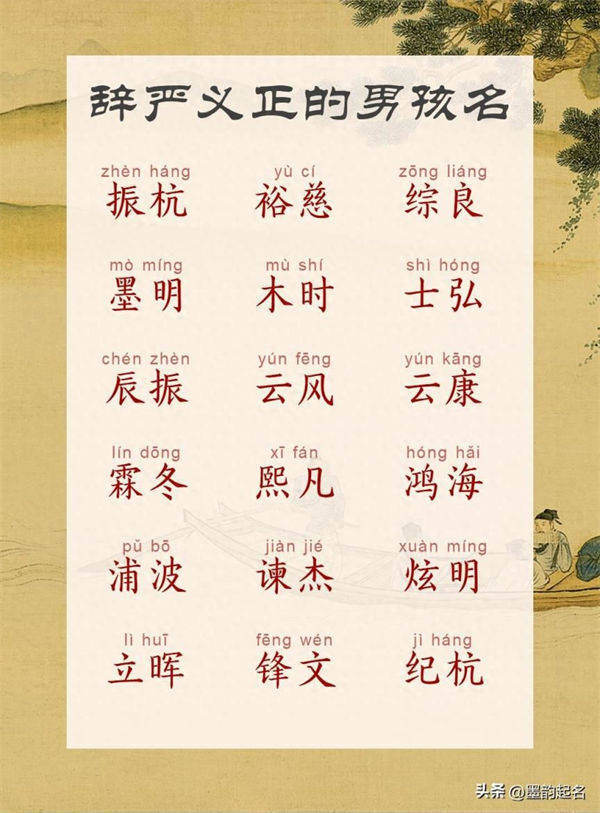 辞严义正的男孩名
zhèn háng yù cí zōng liáng
振杭 裕慈 综良
mò míng mù shí shì hóng
墨明 木时 士弘
chén zhèn yún fēng yún kāng
辰振 云风 云康
lín dōng xī fán hóng hǎi
霖冬 熙凡 鸿海
pǔ bō jiàn jié xuàn míng
浦波 谏杰 炫明
lì huī fēng wén jì háng
立晖 锋文 纪杭
头条 @墨韵起名